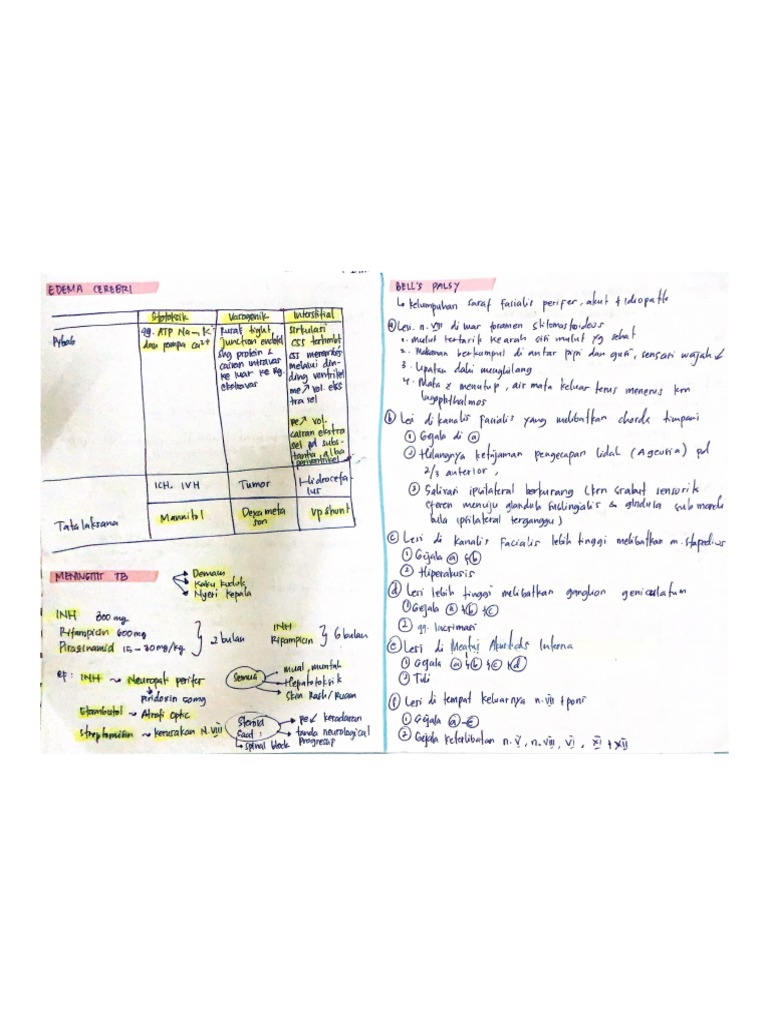 EDEMA CEREBRI
Sitotoksik
Vasogenik
Interstitial
gg. ATP Na → K+
dan pompa Ca2+
Rusak tight
junction endotel
shg protein &
cairan intravas
ke luar ke rg.
ekstravas
sirkulasi
CSS terhambat
CSS merembes
melalui din-
ding ventrikel
me↗ vol. eks
tra sel
pe↗ vol.
cairan ekstra
sel pd subs-
tantia alba
periventrikel
ICH, IVH
Tumor
Hidrocefa-
lus
Tatalaksana
Mannitol
Dexameta
son
VP shunt
MENINGITIS TB
→ Demam
→ Kaku kuduk
→ Nyeri kepala
INH 300 mg
Rifampicin 600 mg
Pirazinamid 15 - 30 mg/kg
2 bulan
INH
Rifampicin
6 bulan
ef : INH → Neuropati perifer
↳ Piridoxin 50mg
Etambutol → Atrofi optic
Streptomisin → kerusakan N.VIII
Semua
→ mual, muntah
→ Hepatotoksik
→ Skin Rash / Ruam
Steroid
saat :
→ pe↙ kesadaran
→ tanda neurological
progresif
↳ spinal block
BELL'S PALSY
↳ kelumpuhan saraf fasialis perifer, akut + idiopatik
ⓐ Lesi n. VII di luar foramen stilomastoideus
1. mulut tertarik kearah sisi mulut yg sehat
2. Makanan berkumpul di antar pipi dan gusi, sensasi wajah ↙
3. Lipatan dahi menghilang
4. Mata menutup, air mata keluar terus menerus krn
lagophthalmos
ⓑ Lesi di kanalis facialis yang melibatkan chorda timpani
① Gejala di ⓐ
② Hilangnya ketajaman pengecapan lidah (Ageusia) pd
2/3 anterior,
③ Salivasi ipsilateral berkurang (krn serabut sensorik
eferen menuju glandula sublingialis & glandula submandi
bula ipsilateral terganggu)
ⓒ Lesi di kanalis facialis lebih tinggi melibatkan m. stapedius
① Gejala ⓐ & ⓑ
② Hiperakusis
ⓓ Lesi lebih tinggi melibatkan ganglion geniculatum
① Gejala ⓐ + ⓑ + ⓒ
② gg. lacrimasi
ⓔ Lesi di Meatus Akustikus Interna
① Gejala ⓐ & ⓑ & ⓒ & ⓓ
② Tuli
ⓕ Lesi di tempat keluarnya n. VII + pons
① Gejala ⓐ - ⓔ
② Gejala keterlibatan n. V, n. VIII, VI, XI + XII